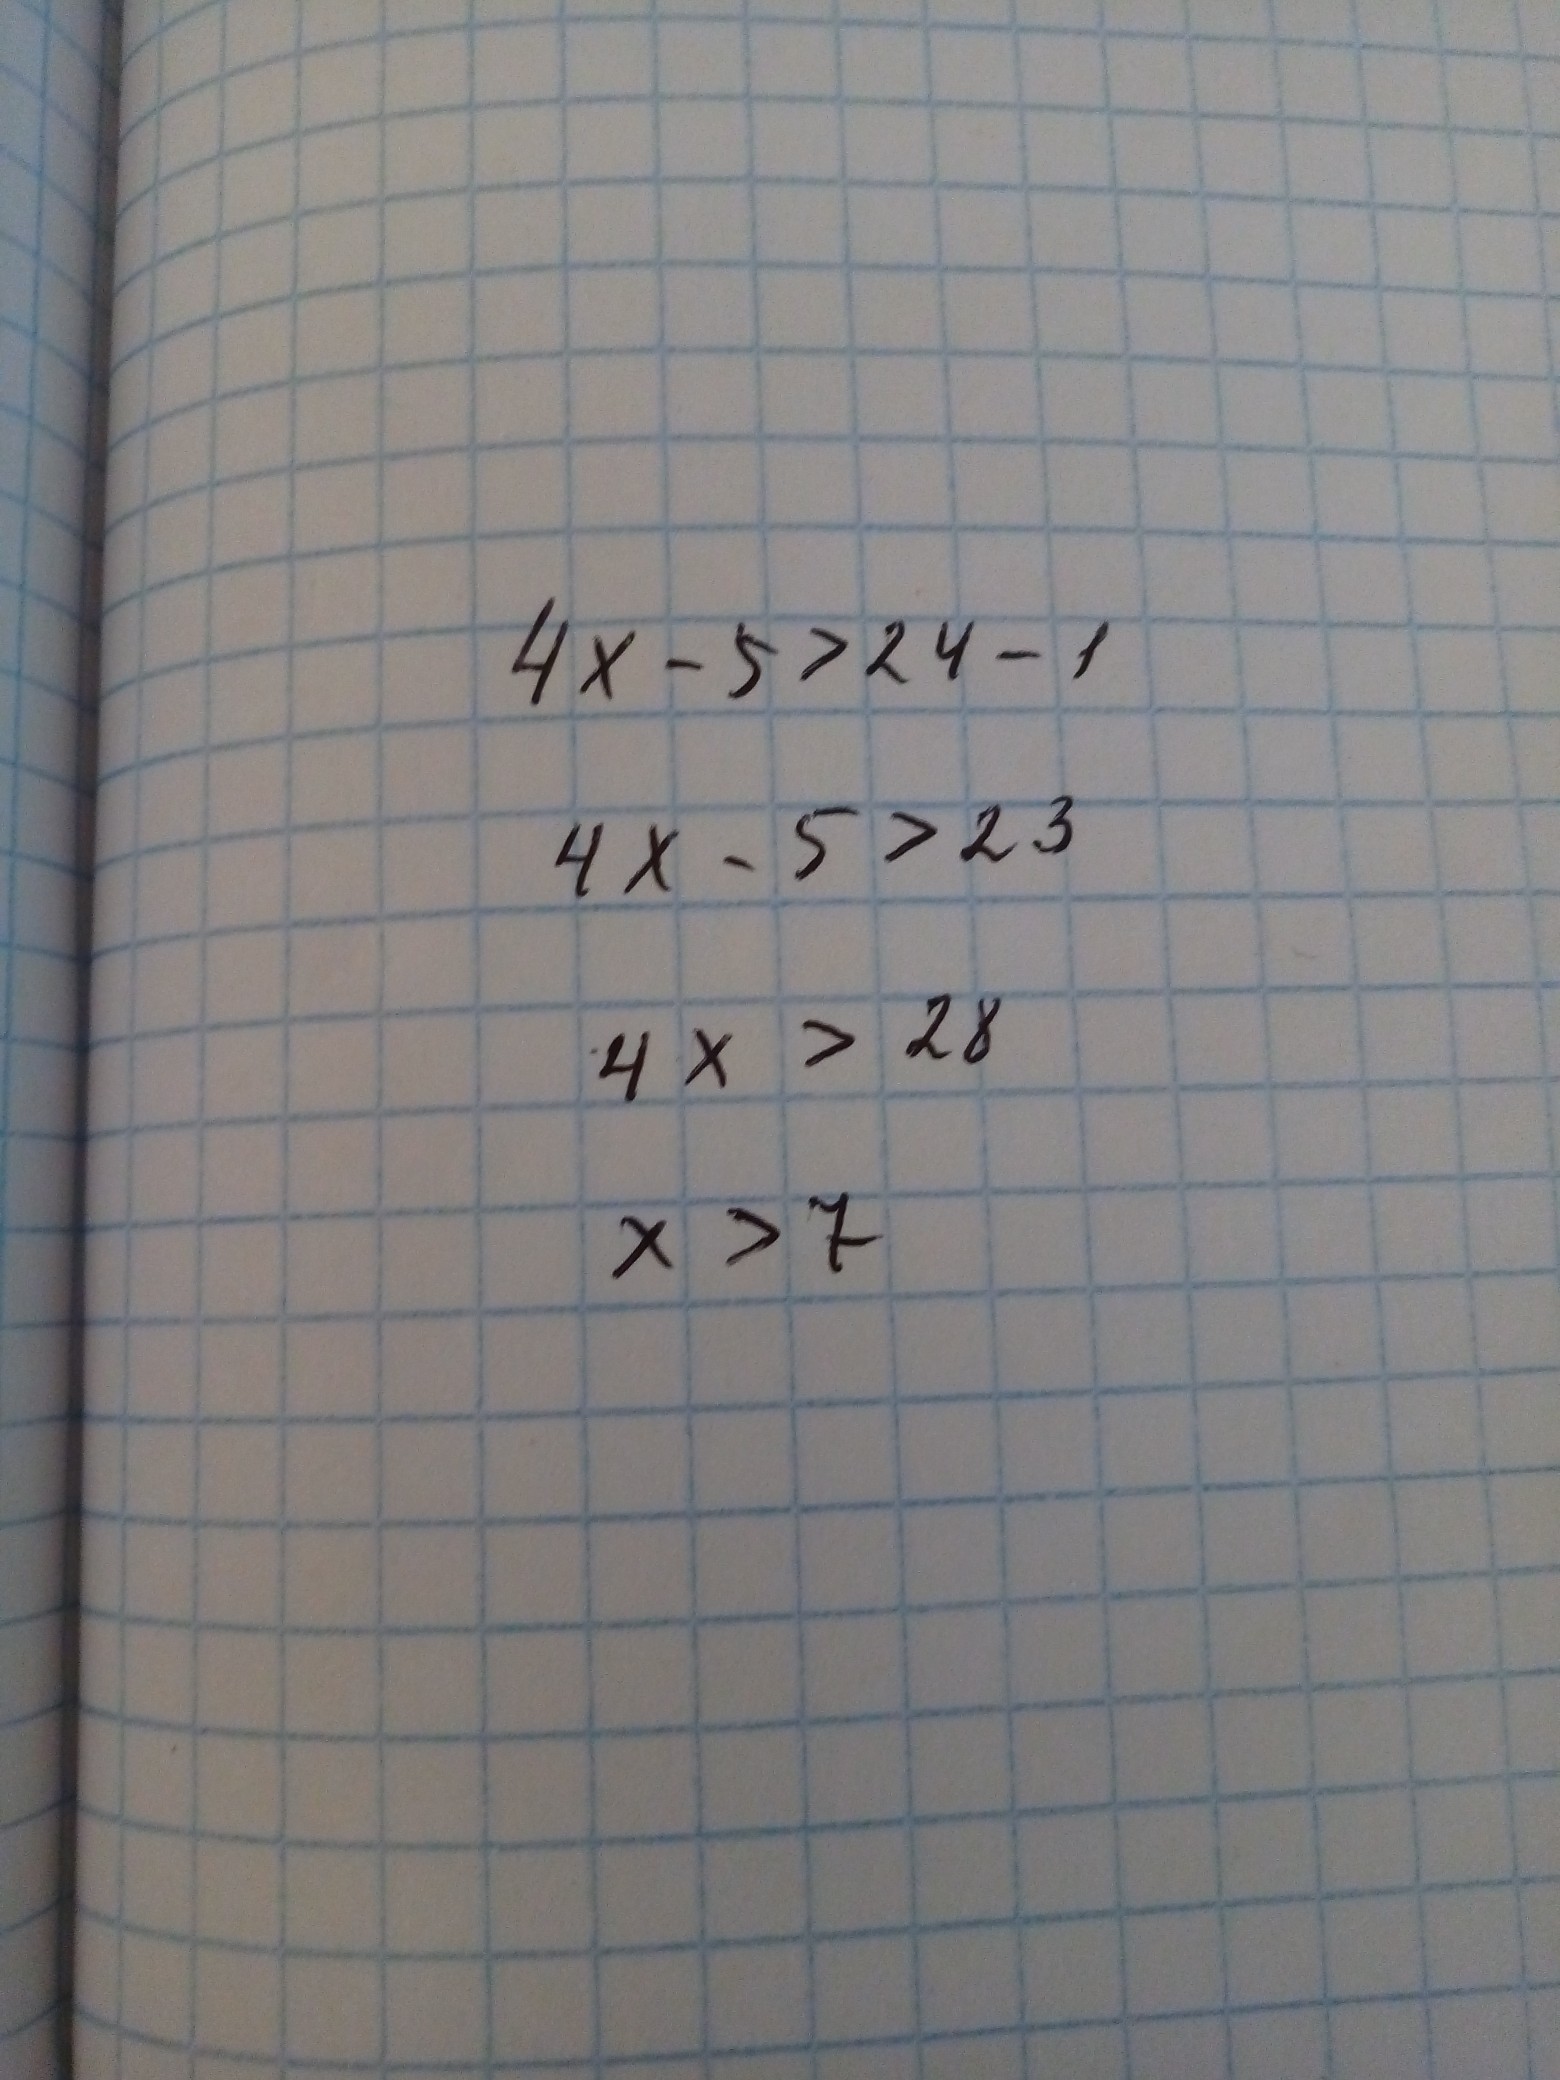 4x - 5 > 24 - 1
4x - 5 > 23
4x > 28
x > 7